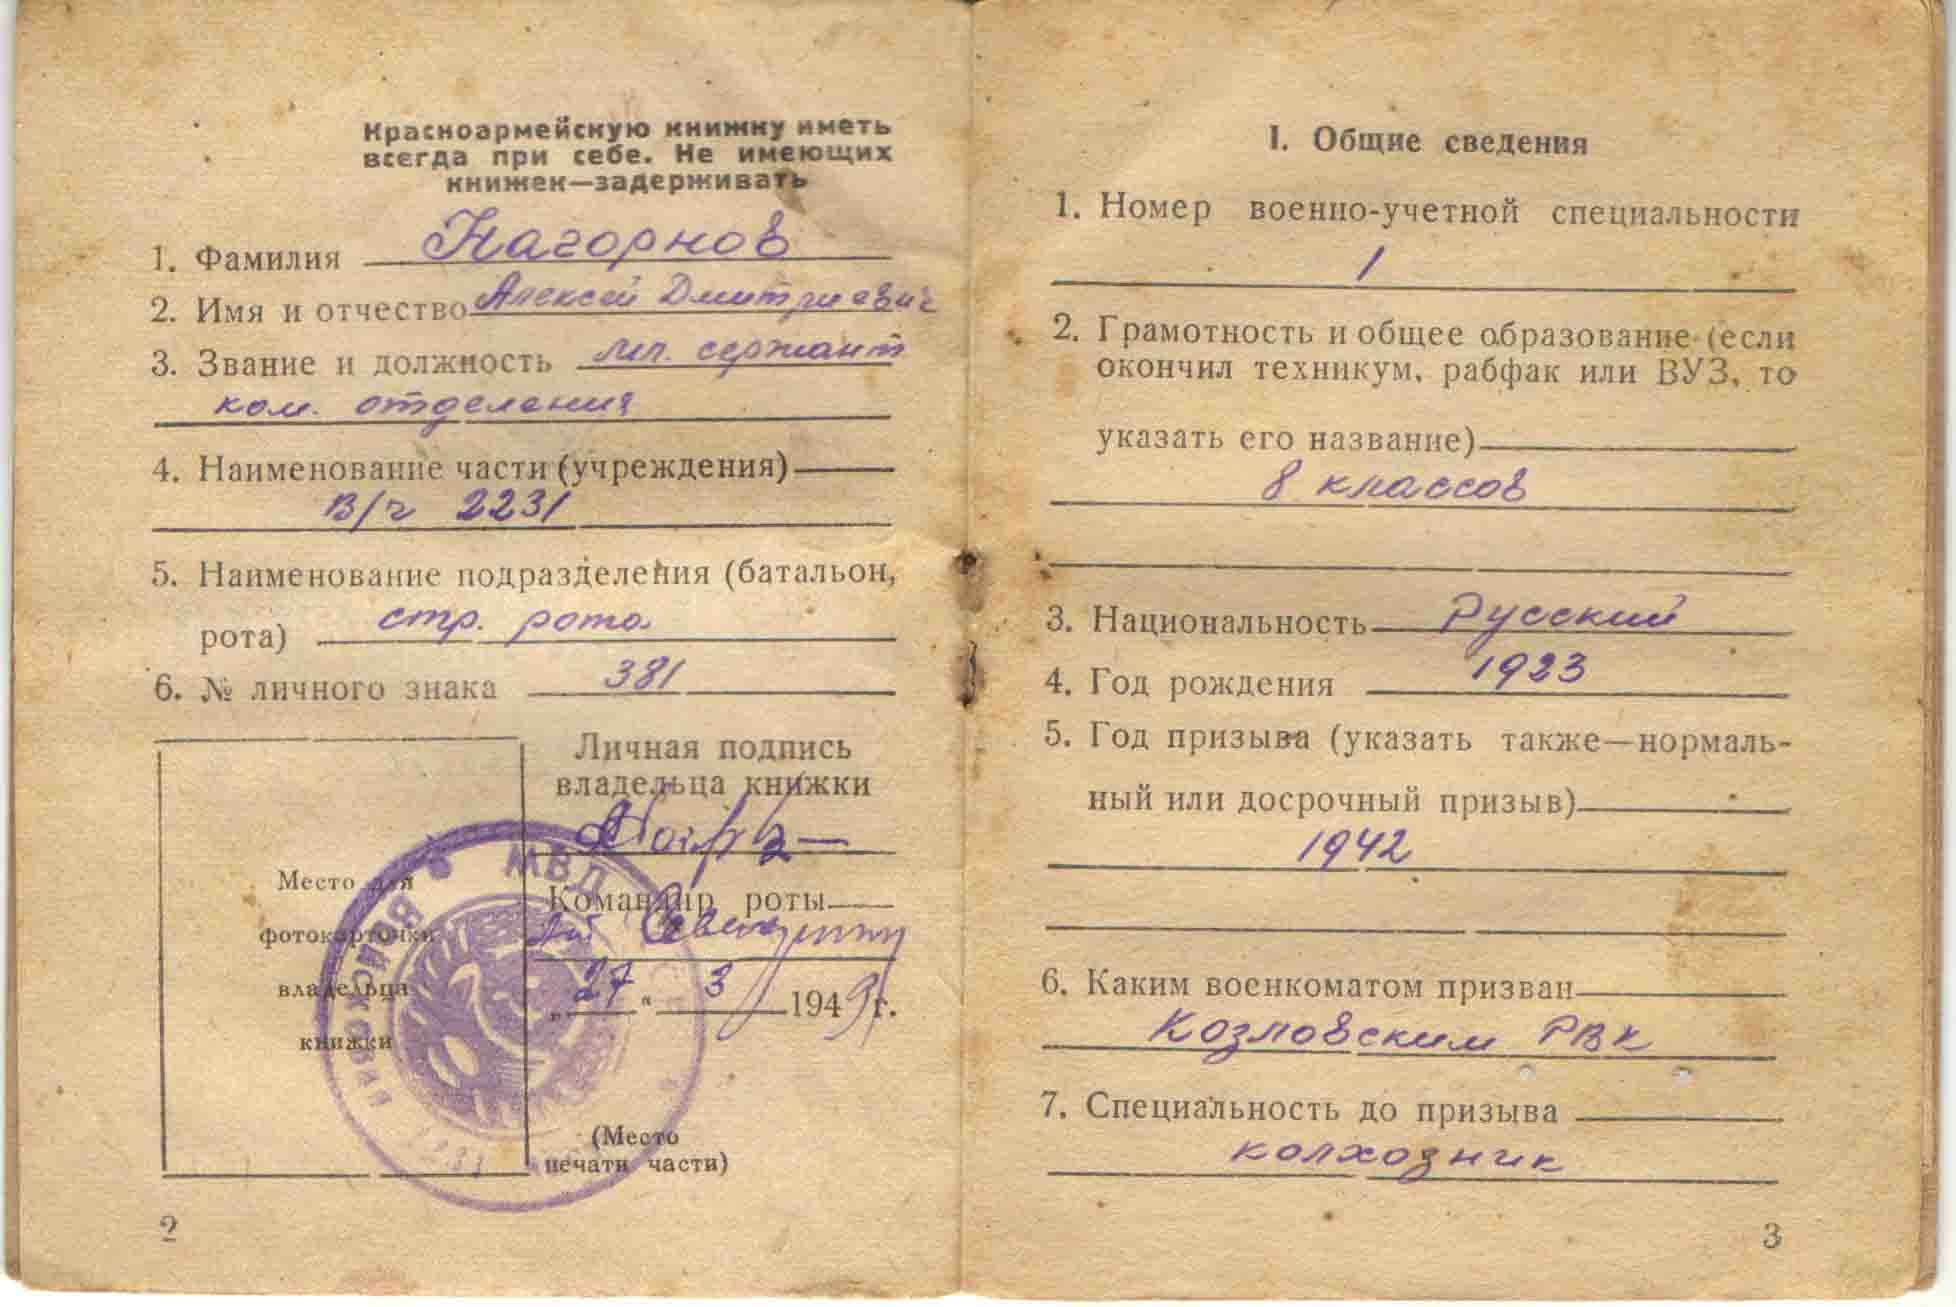 Красноармейскую книжку иметь
всегда при себе. Не имеющих
книжек—задерживать
1. Фамилия Нагорнов
2. Имя и отчество Алексей Дмитриевич
3. Звание и должность мл. сержант
ком. отделения
4. Наименование части (учреждения)
В/ч 2231
5. Наименование подразделения (батальон,
рота) стр. рота
6. № личного знака 381
Личная подпись
владельца книжки
Место для
фотокарточки
владельца
книжки
Командир роты
„27“ 3 194 г.
(Место
печати части)
МВД
ВОЙСКОВАЯ
2
I. Общие сведения
1. Номер военно-учетной специальности
1
2. Грамотность и общее образование (если
окончил техникум, рабфак или ВУЗ, то
указать его название)
8 классов
3. Национальность Русский
4. Год рождения 1923
5. Год призыва (указать также—нормаль-
ный или досрочный призыв)
1942
6. Каким военкоматом призван
Козловским РВК
7. Специальность до призыва
колхозник
3